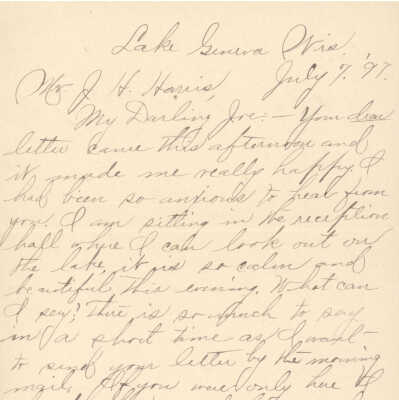 Lake Geneva Wis.
July 7, '97.
Mr J. H. Harris,
My Darling Joe:- Your dear
letter came this afternoon and
it made me really happy. I
had been so anxious to hear from
you. I am sitting in the reception
hall where I can look out on
the lake, it is so calm and
beautiful this evening. What can
I say? There is so much to say
in a short time as I want
to send your letter by the morning
mail. If you were only here I